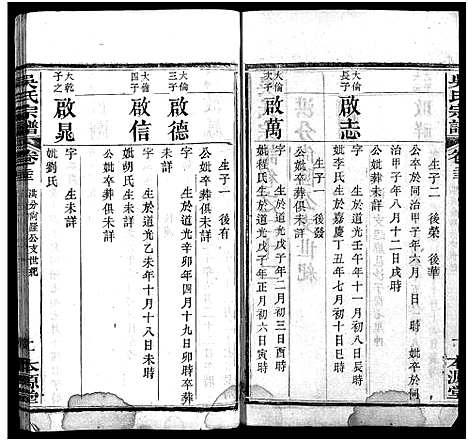 吳氏宗譜
卷三
本源堂
公卒於同治甲子年六月 時 妣卒於同
治甲子年八月十二日戌時
生子二 後榮 後華
大倫長子
啟志
字 生於道光壬午年十一月初八日辰時
妣李氏生於嘉慶丁丑年七月初十日巳時
公妣卒葬俱未詳
生子一 後發
大倫次子
啟萬
字 生於道光戊子年二月初三日酉時
妣程氏生於道光戊子年正月初六日寅時
公妣卒葬俱未詳
生子一 後有
大倫三子
啟德
字 生於道光辛卯年四月十九日卯時卒葬
未詳
大倫四子
啟信
字 生於道光乙未年十月十八日未時
妣胡氏生未詳
公妣卒葬俱未詳
大乾之子
啟晁
字 生未詳
妣劉氏
吳氏宗譜
卷三
洪分向羅公支世紀
本源堂